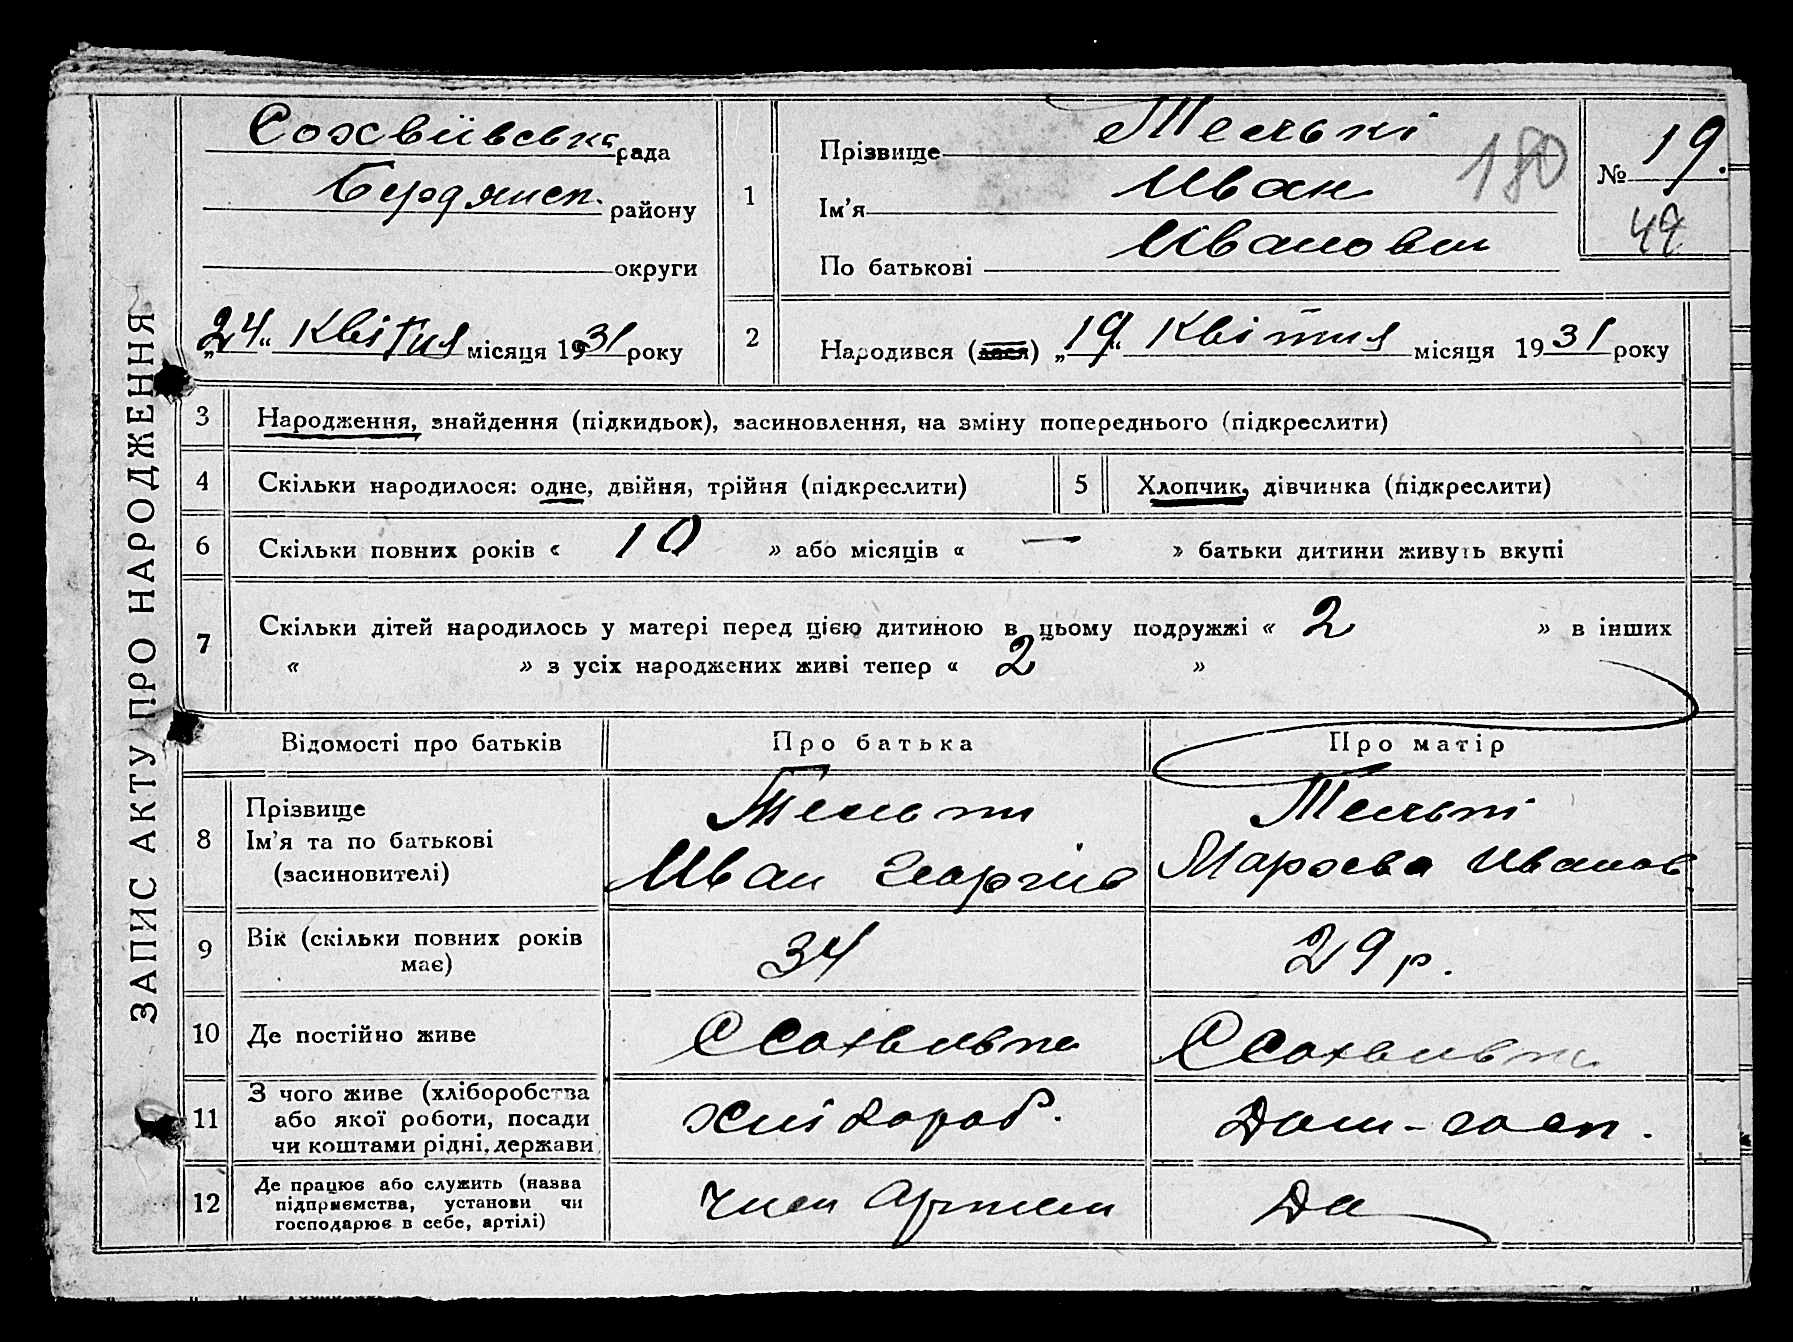 ЗАПИС АКТУ ПРО НАРОДЖЕННЯ
рада
Бердянск. району
округи
„24“ Квітня місяця 1931 року
1
Прізвище
Ім’я Иван
По батькові Иванович
180
№ 19.
2
Народився (лася) „19“ Квітня місяця 1931 року
3
Народження, знайдення (підкидьок), засиновлення, на зміну попереднього (підкреслити)
4
Скільки народилося: одне, двійня, трійня (підкреслити)
5
Хлопчик, дівчинка (підкреслити)
6
Скільки повних років « 10 » або місяців « — » батьки дитини живуть вкупі
7
Скільки дітей народилось у матері перед цією дитиною в цьому подружжі « 2 » в інших
« » з усіх народжених живі тепер « 2 »
Відомості про батьків
Про батька
Про матір
8
Прізвище
Ім’я та по батькові
(засиновителі)
Иван Георгіев
Иванов
9
Вік (скільки повних років
має)
34
29 р.
10
Де постійно живе
11
З чого живе (хліборобства
або якої роботи, посади
чи коштами рідні, держави)
хлібороб.
Дом-госп.
12
Де працює або служить (назва
підприємства, установи чи
господарює в себе, артілі)
член Артели
Да